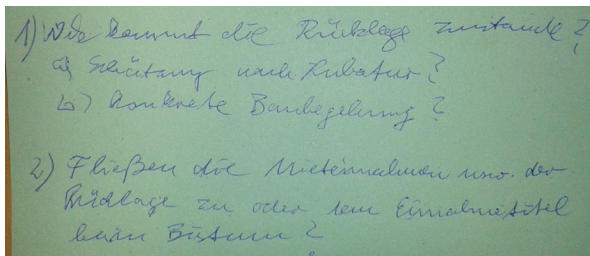 1) Wie kommt die Rücklage zustande?
a) Schätzung nach Kubatur?
b) konkrete Baubegehung?
2) Fließen die Mieteinnahmen usw. der
Rücklage zu oder dem Einnahmetitel
beim Bistum?